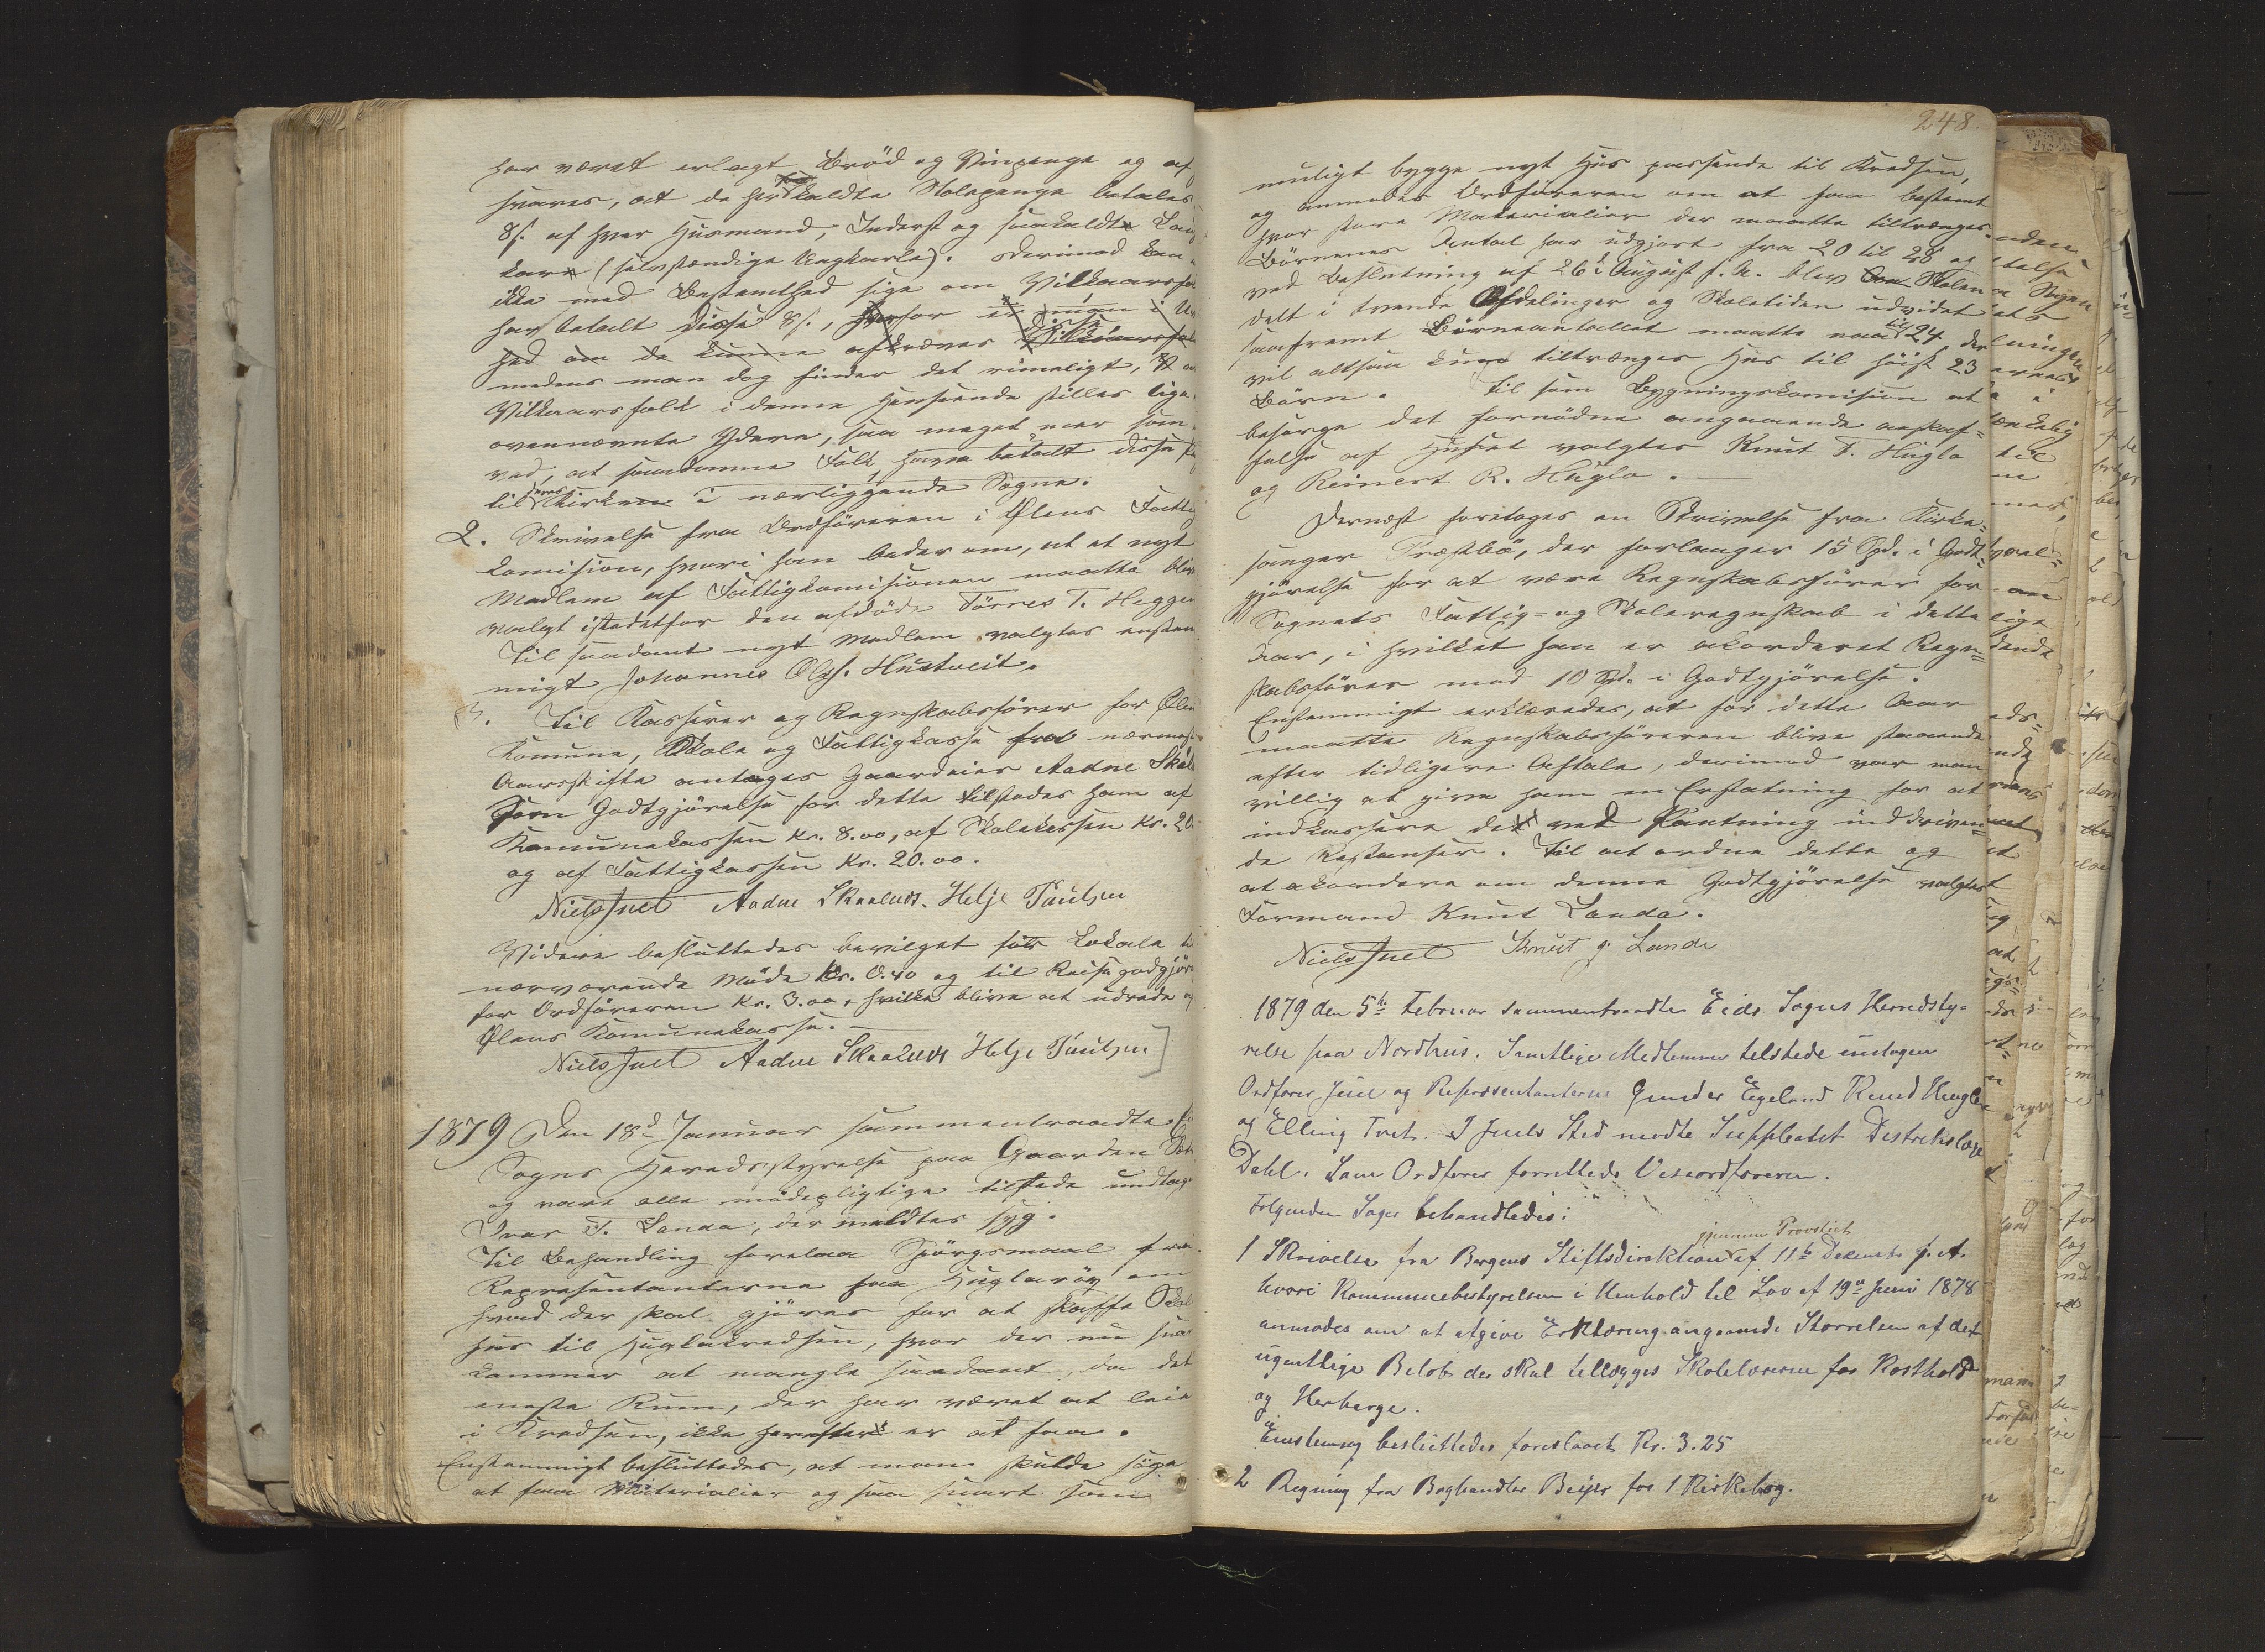 har været erlagt Brød og Vinpenge og af
svares, at de her saakaldte Stolepenge betales
8 s. af hver Husmand, Inderst og saakaldte
karle (selvstændige Ungkarle). Derimod kan
ikke med Bestemthed sige om Vilkaarsfolk
har betalt disse 8 s., hvorfor man i
hed om de kunne afkræves disse Vilkaarsfolk
medens man dog finder det rimeligt, at
Vilkaarsfolk i denne Henseende stilles lige
ovennævnte Ydere, saa meget mer som
ved, at saadanne Folk have betalt disse
til deres Kirker i nærliggende Sogne.
2. Skrivelse fra Ordføreren i Ølens Fattig
komision, hvori han beder om, at et nyt
Medlem af Fattigkomisionen maatte blive
valgt istedetfor den afdøde Tørres T. Heggen
Til saadant nyt Medlem valgtes enstem
migt Johannes Olss. Hustveit.
3. Til Kasserer og Regnskabsfører for Ølens
Komune, Skole og Fattigkasse fra nærmeste
Aarsskifte antages Gaardeier Aadne
Som Godtgjørelse for dette tilstodes ham af
Komunekassen Kr. 8.00, af Skolekassen Kr. 20.
og af Fattigkassen Kr. 20.00.
Niels Juel Aadne Skaalnes. Helje Paulsen
Videre besluttedes bevilget for Lokale til
nærværende Møde Kr. 0.40 og til Reisegodgjør
for Ordføreren Kr. 3.00, hvilke blive at udrede af
Ølens Komunekasse.
Niels Juel Aadne Skaalnes Helje Paulsen
1879 Den 18de Januar sammentraadte
Sogns Heredsstyrelse paa Gaarden
og vare alle mødepligtige tilstede undtagen
Ivar T. Landa, der meldtes syg.
Til Behandling forelaa Spørgsmaal fra
Repræsentanterne paa Huglaøy om
hvad der skal gjøres for at skaffe Skole
hus til Huglakredsen, hvor der nu saa
kommer at mangle saadant, da det
eneste Rum, der har været at leie
i Kredsen, ikke herefter er at faa.
Enstemmigt besluttedes, at man skulde søge
at faa Materialier og saa snart som
248.
muligt bygge nyt Hus passende til Kredsen,
og anmodes Ordføreren om at faa bestemt
hvor store Materialier der maatte tiltrænges.
Børnenes Antal har udgjort fra 20 til 28 og
ved Beslutning af 26de August f. A. blev Skolen
delt i tvende Afdelinger og Skoletiden udvidet
saafremt Børneantallet maatte naa til 24, der
vil altsaa kun tiltrænges Hus til høist 23
Børn. Til som Bygningskomision at
besørge det fornødne angaaende anskaf=
felse af Huset valgtes Knut T. Hugla
og Reinert R. Hugla.
Dernæst foretoges en Skrivelse fra Kirke=
sanger Præstbø, der forlanger 15 Spd. i Godt=
gjørelse for at være Regnskabsfører for
Sognets Fattig- og Skoleregnskab i dette
Aar, i hvilket han er akorderet Regn=
skabsfører med 10 Spd. i Godtgjørelse.
Enstemmigt erklæredes, at for dette Aar
maatte Regnskabsføreren blive staaende
efter tidligere Aftale, derimod var man
villig at give ham en Erstatning for at
indkassere de ved Pantning inddriven=
de Restanser. Til at ordne dette og
at akordere om denne Godtgjørelse valgtes
Formand Knut Landa.
Niels Juel Knut J. Landa
1879 den 5te Februar sammentraadte Eids Sogns Herredsty=
relse paa Nordhus. Samtlige Medlemmer tilstede undtagen
Ordfører Juel og Repræsentanterne Gunder Eegeland Knud Hugla
og Elling Tvet. I Juels Sted mødte Suppleatet Distrikslæge
Dahl. Som Ordfører forrettede Viseordføreren.
Følgende Sager behandledes:
gjennem Provstiet
1 Skrivelse fra Bergens Stiftsdirektion af 11te Decemb. f. A.
hvori Kommunebestyrelsen i Henhold til Lov af 19de Juni 1878
anmodes om at afgive Erklæring angaaende Størrelsen af det
ugentlige Beløb der skal tillægges Skolelærerne for Kosthold
og Herberge.
Eenstemig besluttedes foreslaaet Kr. 3.25
2 Regning fra Boghandler Beyer for 1 Kirkebog.